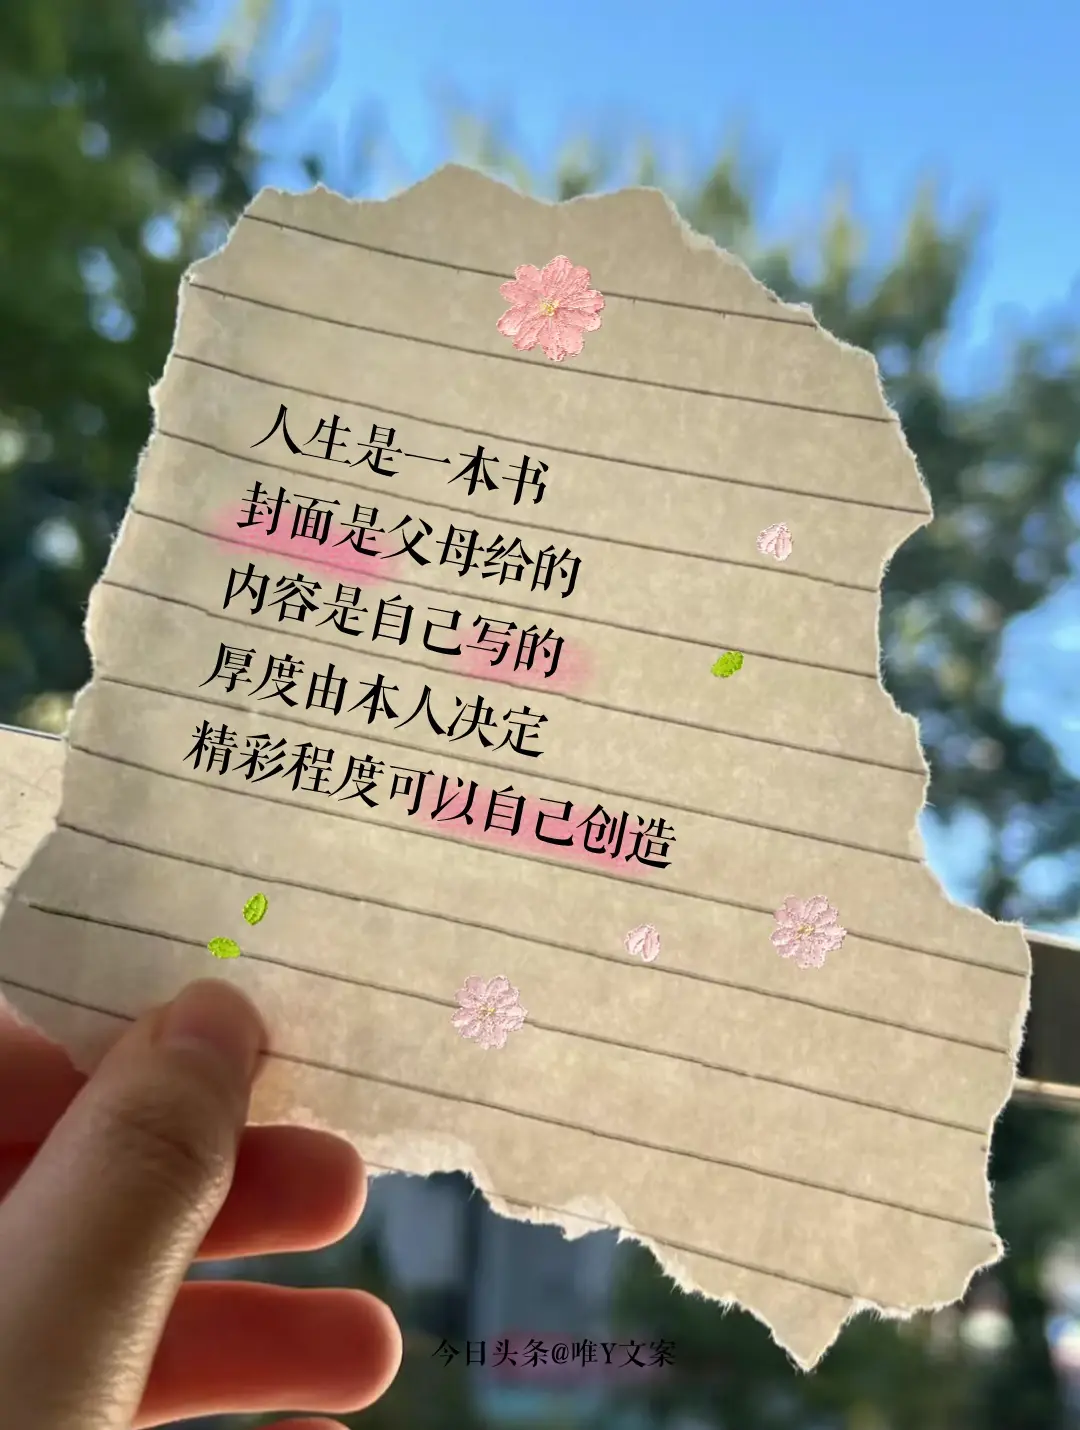 人生是一本书
封面是父母给的
内容是自己写的
厚度由本人决定
精彩程度可以自己创造
今日头条@唯Y文案